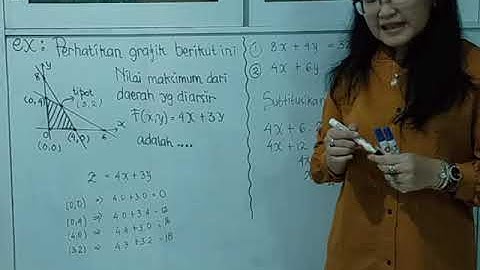 ex: Perhatikan grafik berikut ini
y
8
tipot
(3,2)
(0,4)
0
(0,0)
(4,0)
6
x
Nilai maksimum dari
daerah yg diarsir
F(x,y) = 4x + 3y
adalah ....
Z = 4x + 3y
(0,0) ⇒ 4.0 + 3.0 = 0
(0,4) ⇒ 4.0 + 3.4 = 12
(4,0) ⇒ 4.4 + 3.0 = 16
(3,2) ⇒ 4.3 + 3.2 = 18
① 8x + 4y = 32
② 4x + 6y
Subtitusikan
4x + 6.2
4x + 12
4x